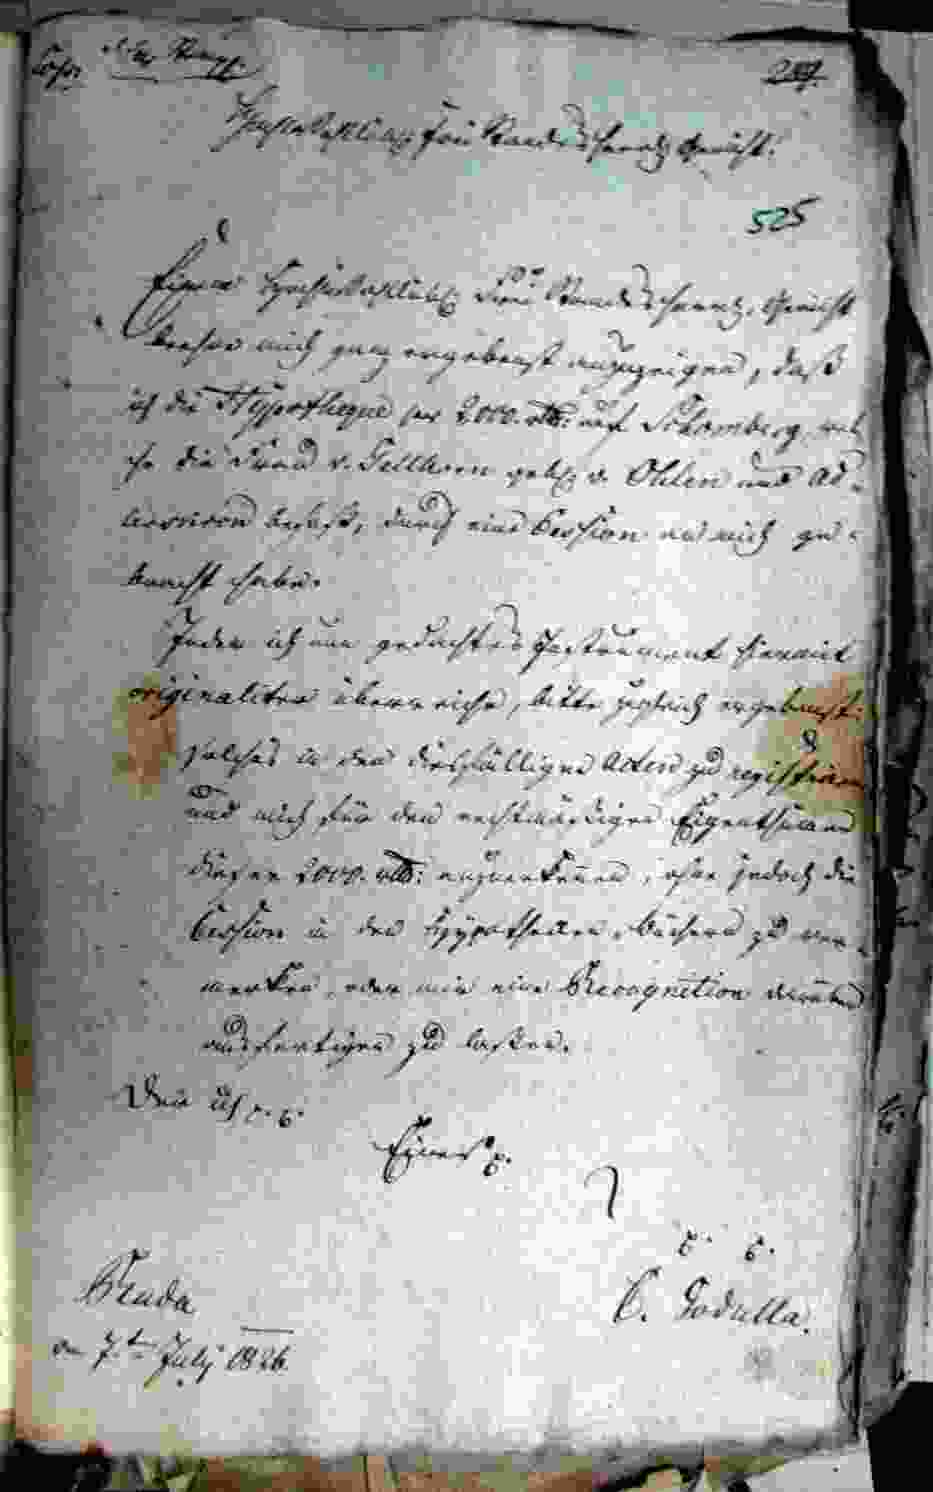 Hochwohllöbl. Frei Standesherrl. Gericht!
525
Einem Hochwohllöbl. Frei Standesherrl. Gericht
beehre mich ganz ergebenst anzuzeigen, daß
ich die Hypotheque per 2000. rtl: auf Schomberg, wel
che die Frau v. Gellhorn geb. v. Ohlen und Ad-
lerscron besaß, durch eine Cession an mich ge-
bracht habe.
Indem ich nun gedachtes Instrument hiermit
originaliter überreiche, bitte zugleich ergebenst:
solches in den diesfälligen Acten zu registriren
und mich für den rechtmäßigen Eigenthümer
dieser 2000. rtl: anzuerkennen, ohne jedoch die
Cession in den Hypotheken-Büchern zu ver-
merken, oder mir eine Recognition darüber
ausfertigen zu lassen.
Der ich p. p.
Eines p.
p. p.
C. Godulla.
Ruda
den 7t July 1826.